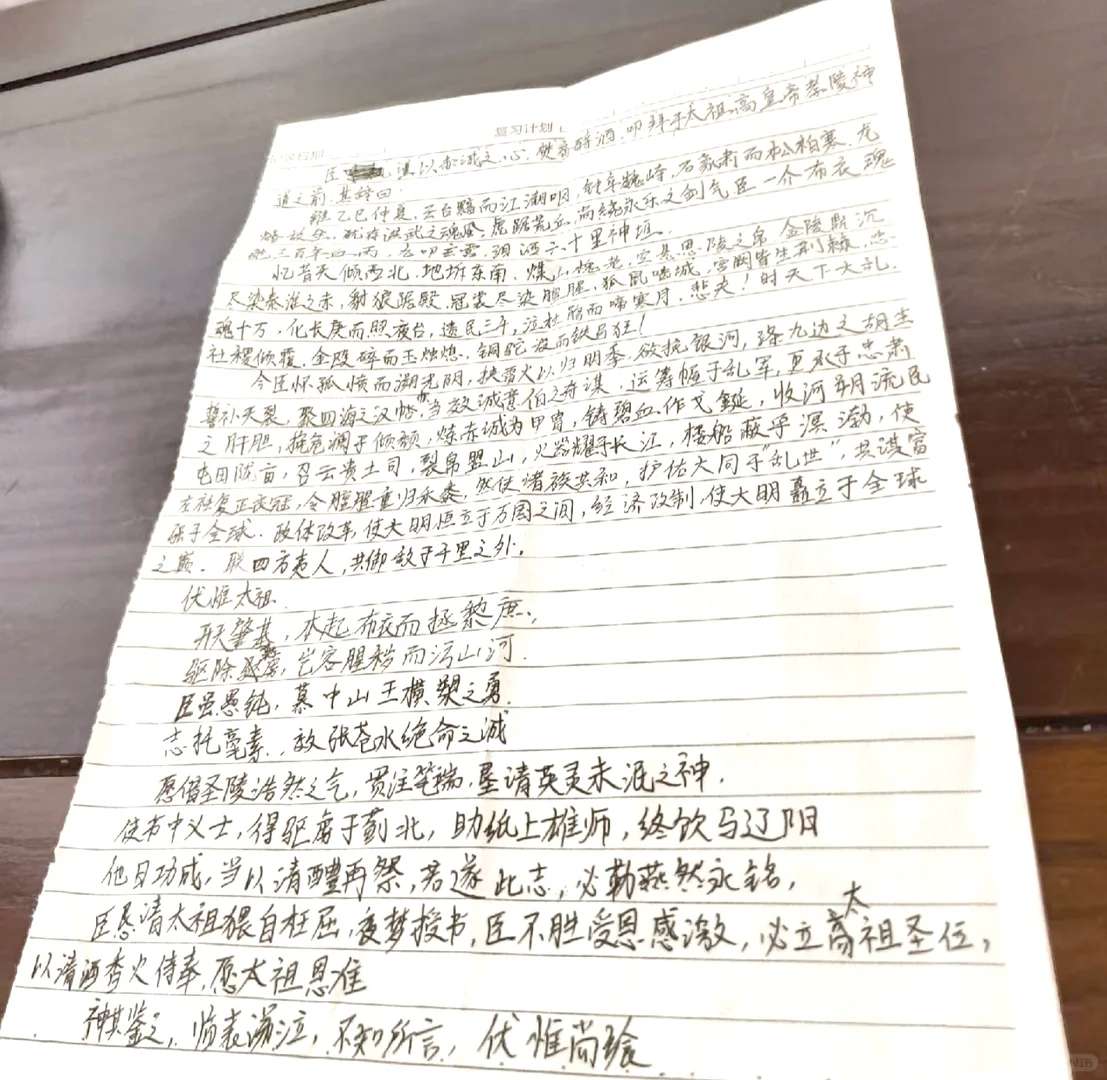 复习计划
臣 谨以赤诚之心,焚香酹酒,叩拜于太祖高皇帝孝陵神
道之前,其辞曰
维乙巳仲夏,云台黯而江潮咽,钟阜巍峙,石象肃而松柏寒,
犹存洪武之魂魄,虎踞荒丘,尚绕永乐之剑气,臣一介布衣,魂
三百年 雨,酒六十里神垣。
忆昔天倾西北,地坼东南,煤山 思陵之帛,金陵 沉
尽染秦淮之赤,豺狼踞殿,冠裳尽染腥膻,狐鼠 城,宫阙皆生荆棘,忠
魂十万,化长庚而照夜台,遗民三千,泣杜鹃而啼寒月,悲夫!时天下大乱,
社稷倾覆,金瓯碎而玉烛熄,铜驼没而铁马狂!
今臣怀孤愤而溯光阴,挟 火以归明季,欲挽银河,涤九边之胡尘
誓补天裂,聚四海之汉帜,当效诚意伯之奇谋,运筹幄于乱军,更承于忠肃
之肝胆,挽危澜于倾颓,炼赤诚为甲胄,铸碧血作戈铤,收河朔流民
屯田陇亩,召云贵土司,裂帛盟山,火器耀于长江,楼船蔽乎溟渤,使
左衽复正衣冠,令腥膻重归禾黍,然使诸族共和,护佑大同于“乱世”,共谋富
强于全球,政体改革,使大明恒立于万国之间,经济改制,使大明矗立于全球
之巅,联四方夷人,共御敌于千里之外。
伏惟太祖
开天肇基,本起布衣而拯黎庶,
驱除 ,岂容腥秽而污山河.
臣虽愚钝,慕中山王横槊之勇
志托毫素,效张苍水绝命之诚
愿借圣陵浩然之气,贯注笔端,垦请英灵未泯之神.
使书中义士,得驱虏于蓟北,助纸上雄师,终饮马辽阳
他日功成,当以清醴再祭,若遂此志,必勒燕然永铭,
臣恳请太祖猥自枉屈,夜梦授书,臣不胜受恩感激,必立太祖圣位,
以清酒香火侍奉,愿太祖恩准
神其鉴之,临表涕泣,不知所言,伏惟尚飨